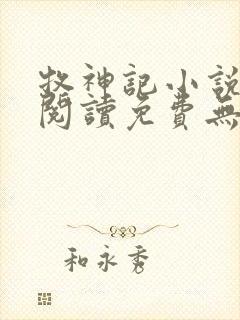 牧神記小說
閱讀免費無
和永秀